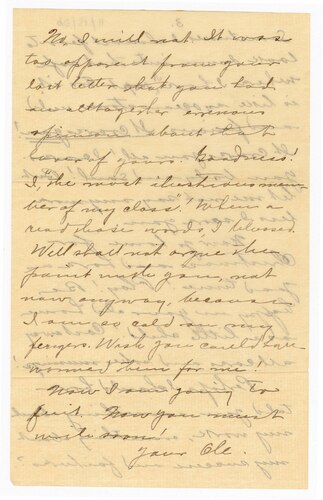 No, I will not. It was
too apparent from your
last letter that you had
an altogether erronous
about that
lover of yours. Goodness!
I, "the most illustrious mem-
ber of my class"! When I
read those words, I blessed.
Well shall not argue the
point with you, not
now anyway, because
I am so cold in my
fingers. Wish you could have
warmed them for me!
Now I am going to
quit. Now you must
write soon!
Your Ole.